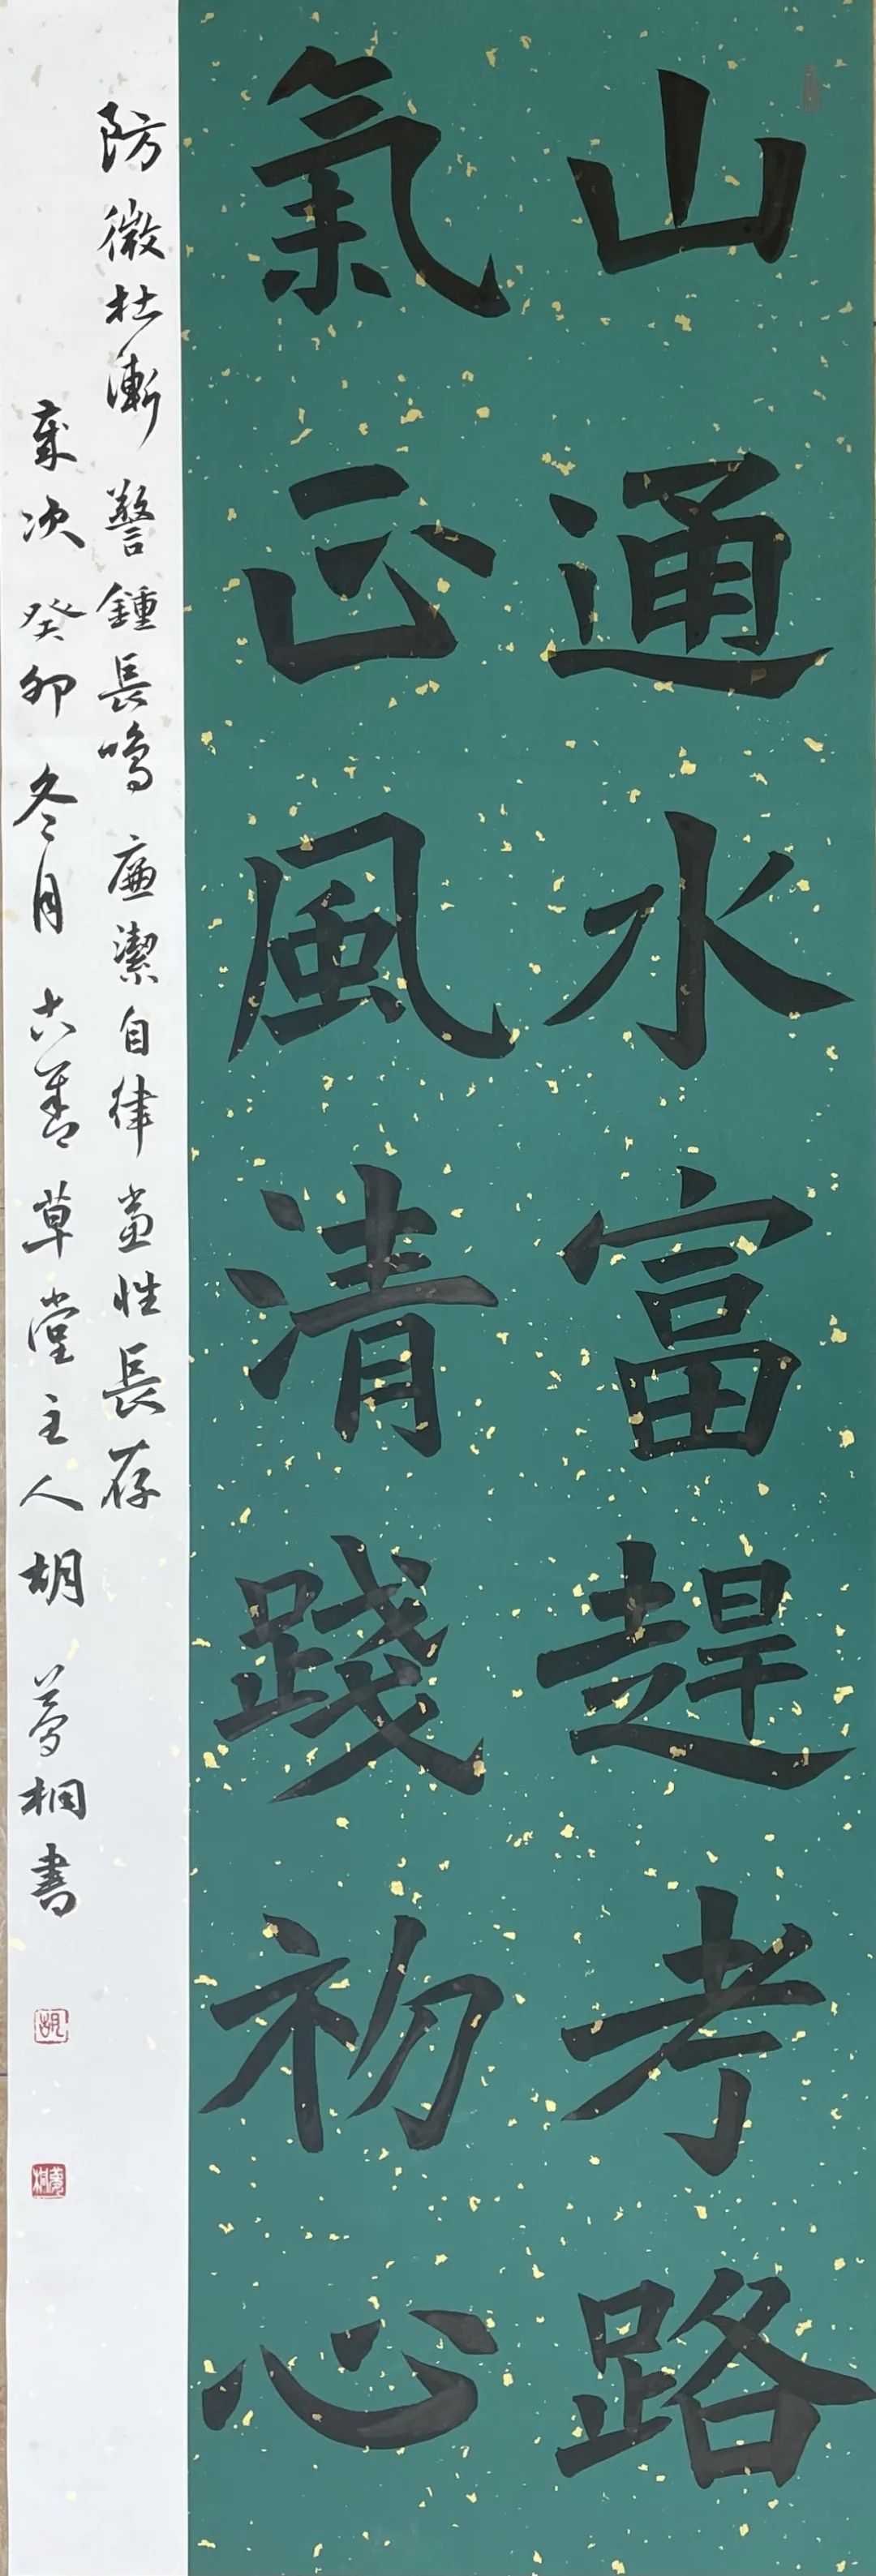 山通水富趕考路
氣正風清踐初心
防微杜漸 警鍾長鳴 廉潔自律 黨性長存
歲次癸卯冬月 六善草堂主人胡夢桐書
胡
夢桐